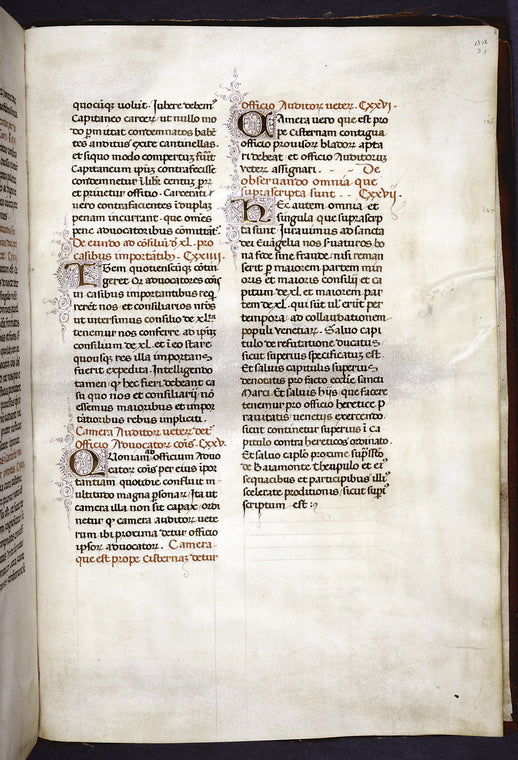 quocūqꝫ voluit. Iubere debem⁹
Capitaneo carceꝝ ut nullo mo
do ꝑmittat condemnatos habē
tes anditus exire cantinellas.
et siquo modo compertuꝫ fuīt
Capitaneum ipūꝫ contrafecisse
condemnetur ī libr̄ centuꝫ ꝑꝝ
et priuetur officio. Carcerati
uero contrafacientes ī duplaꝫ
penam incurrant. que om̄es
pene aduocatoribus cōmittūt᷑.
De eundo ad cōsiliū d̄ xl. pro
casibus importātibꝫ. CXXIIII.
ITem quotienscūqꝫ cōtin
geret qꝫ aduocatores cōīs
in casibus importantibus req̄
rerēt nos et consiliarios nr̄os
ut intersimus consilio de xl.ᵗᵃ
tenemur nos conferre ad ipūꝫ
consilium de xl. et ī eo stare
quousqꝫ res illa importans
fuerit expedita. Intelligendo
tamen qꝫ hec fieri debeant ca
su quo nos et consiliarij nō
essemus maioribus et impor
tatioribus rebus impliciti.
Camera Auditoꝝ ueteꝝ det᷑
Officio Aduocatoꝝ cōīs. CXXV.
QUoniam ad officium aduo
catoꝝ cōīs per eius īpor
tantiam quotidie confluit m
ultitudo magna ꝑsonaꝝ. Ita ut
camera illa non sit capax. ordi
netur qꝫ camera auditoꝝ uete
rum ibi proxima detur officio
ipsoꝝ aduocatoꝝ. Camera
que est prope cisternaꝫ detur
officio Auditoꝝ ueteꝝ. CXXVI.
CAmera uero que est pro
pe cisternam contigua
officio prouisoꝝ bladoꝝ apta
ri debeat et officio Auditoruꝫ
ueteꝝ assignari. De
obseruando omnia que
suprascripta sunt. CXXVII.
HEc autem omnia et
singula que suprascrip
ta sunt Iurauimus ad sancta
dei Euāgelia nos s̄uaturos bo
na fide sine fraude. nisi reman
serit ꝑ maiorem partem min
oris et maioris consilij et ca
pitum de xl. et maiorem par
tem de xl. qui sūt ul̓ erūt per
tempora ad collaudationem
populi venetiaꝝ. Saluo capi
tulo de refutatione ducatus
sicut superius specificatuꝫ est
Et saluis capitulis superius
denotatis pro facto eccl̄ie sancti
Marci. Et saluis hijs que facere
tenemur pro officio heretice p
rauitatis uenetijs exercendo.
sicut continetur superius ī ca
pitulo contra hereticos ordinato.
Et saluo cap̄lo proxime sup̄isto
de Baiamonte theupulo et ei⁹
sequacibus et participibus illi⁹
scelerate proditionis sicut sup̄i
scriptum est